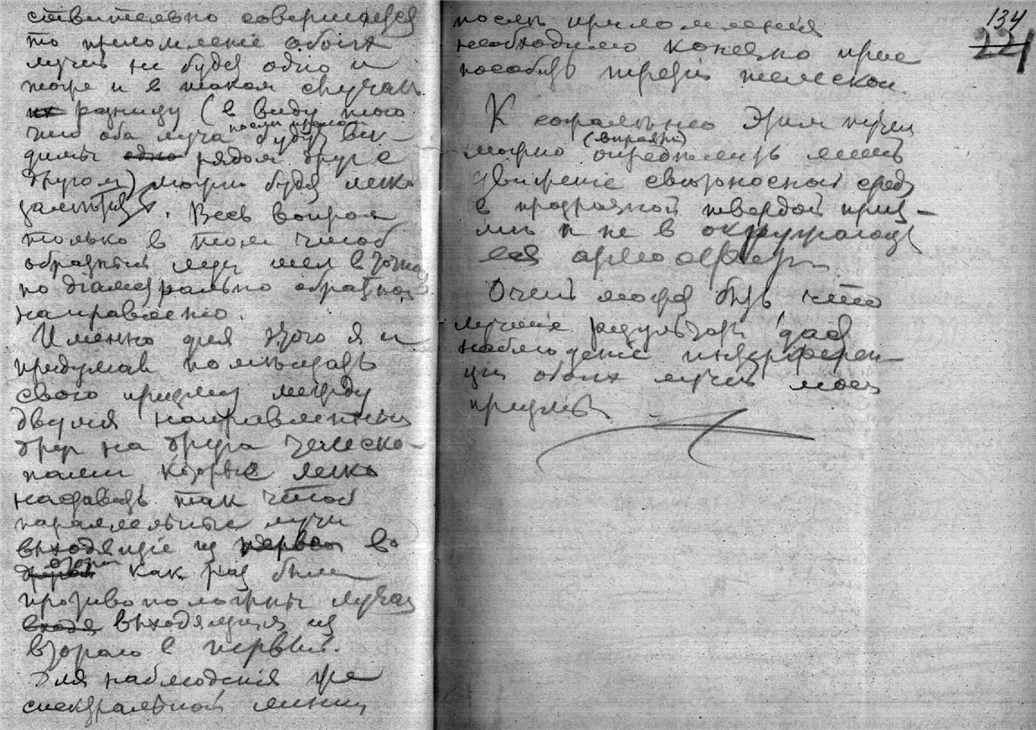 ствительно совершается
то преломленiе обоих
лучей не будет одно и
тоже и в таком случае
их разницу (в виду того
что оба луча после преломл. будут ви-
димы одно рядом друг с
другом) можно будет легко
заметить. Весь вопрос
только в том чтоб
обратный луч шел в точно
по дiаметрально обратном
направлению.
Именно для этого я и
придумал помещать
свою призму между
двумя направленными
друг на друга телеско-
пами которые легко
наставить так чтоб
параллельные лучи
выходящiе из первого во
второй как раз были
противоположны лучам
входя выходящим из
второго в первый.
Для наблюденiя же
спектральной линии
134
221
после преломленiя
необходимо конечно прис
пособить третiй телескоп.
К сожаленью этим путем
можно (вероятно) определить лишь
движенiе светоносной среды
в прозрачной твердой приз-
ме и не в окружающей
ея атмосфере.
Очень может быть что
лучшiе результаты даст
наблюденiе интерферен
ции обоих лучей моей
призмы.